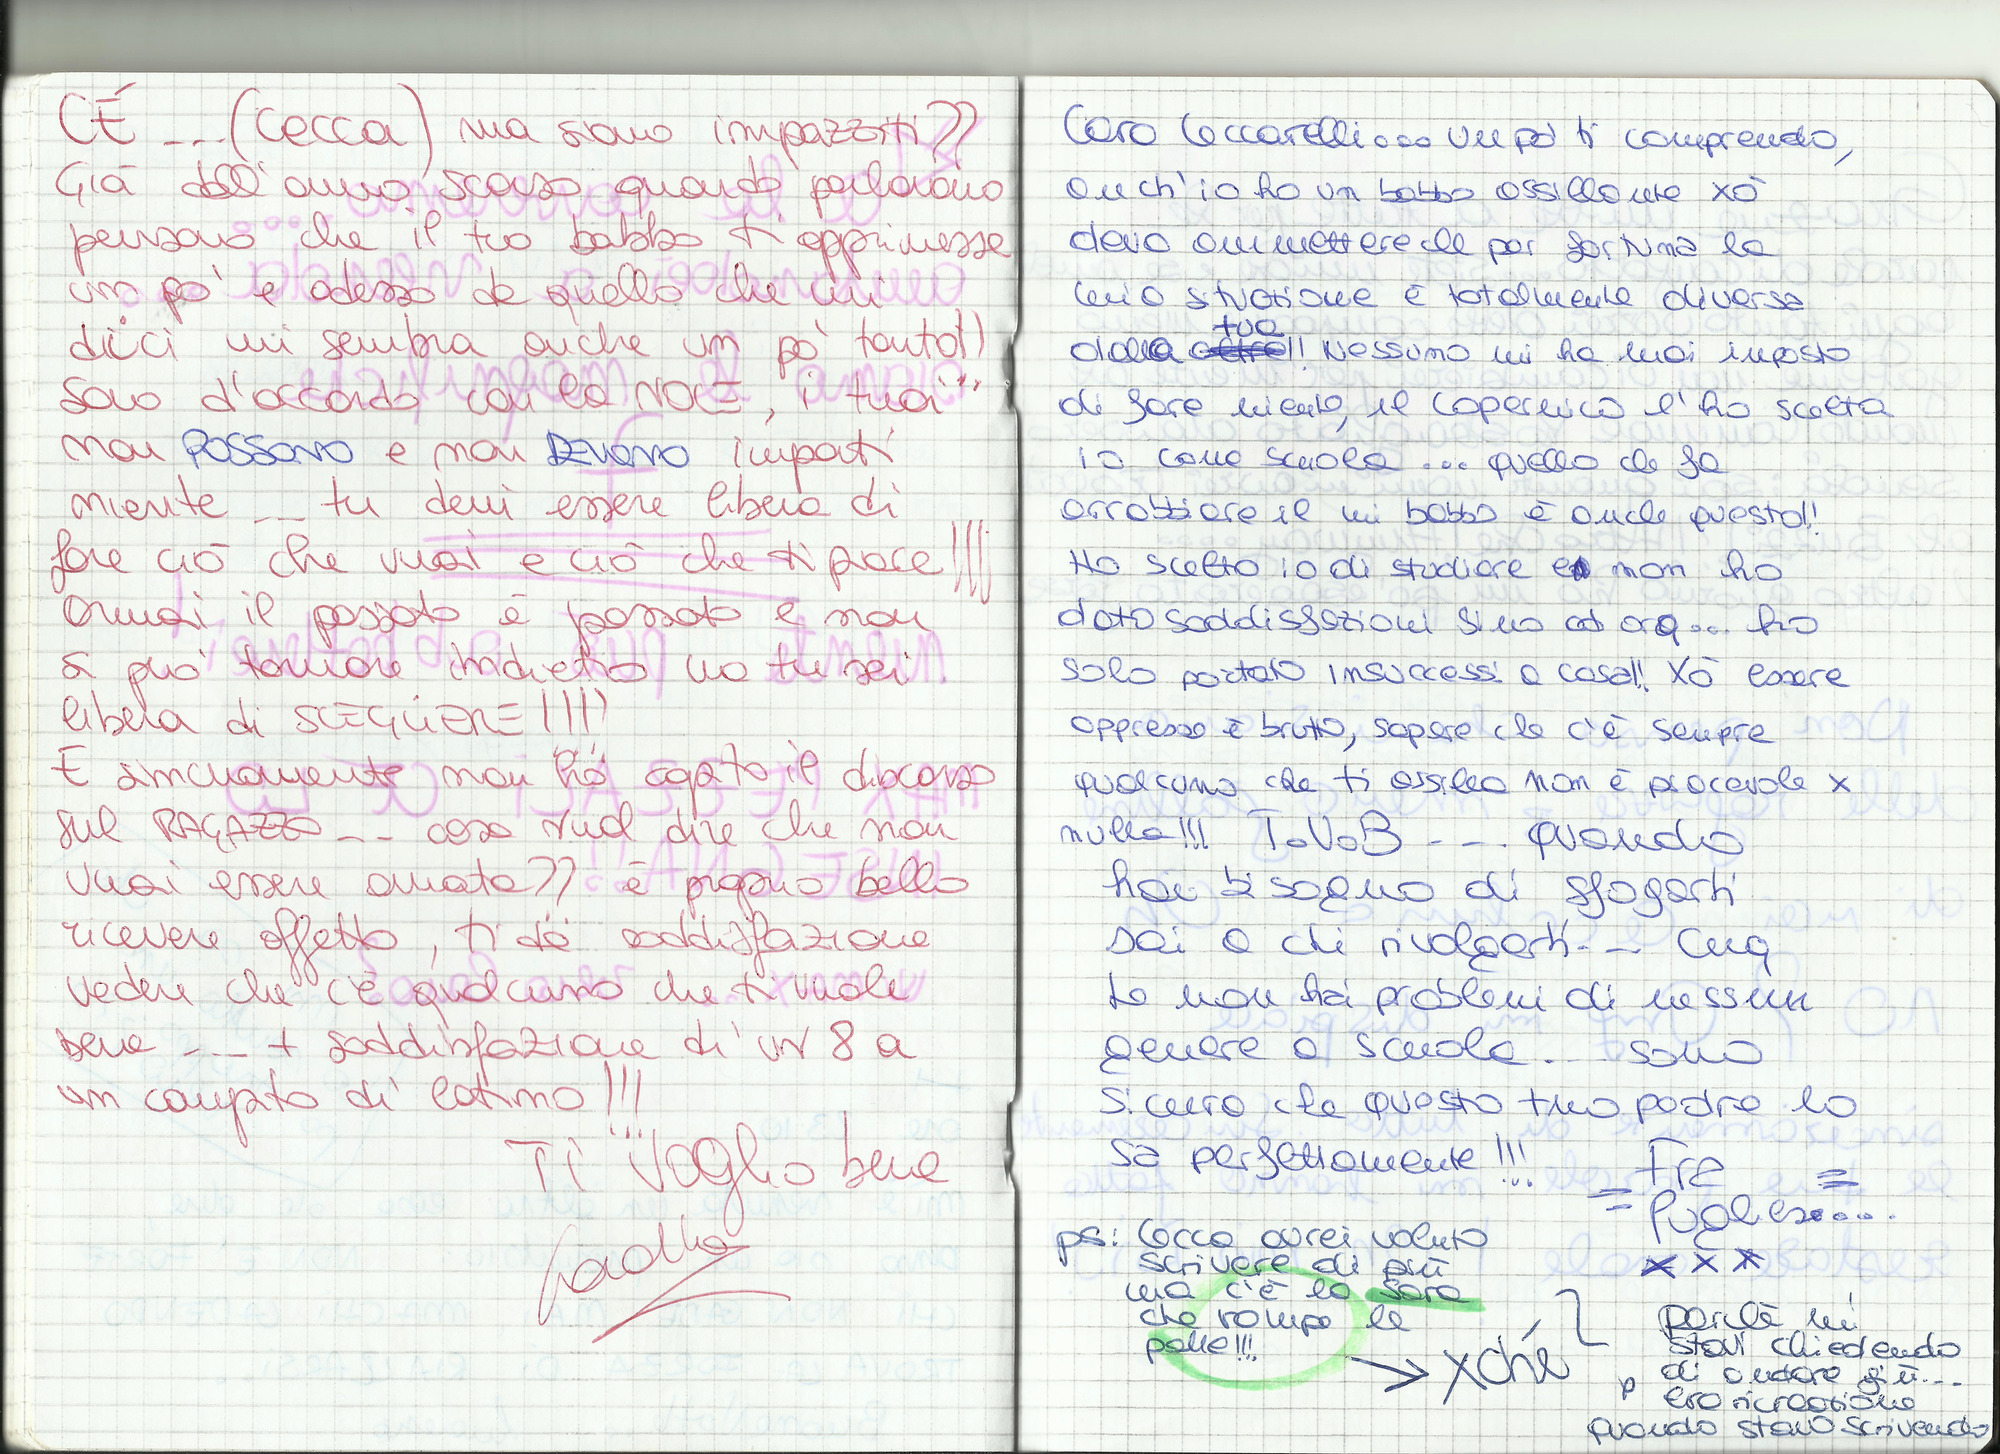 CÉ ...(Cecca) ma siamo impazziti??
Già dall'anno scorso quando parlavamo
pensavo che il tuo babbo ti opprimesse
un pò e adesso da quello che mi
dici mi sembra anche un pò tanto!!
Sono d'accordo con la NOCE, i tuoi
non POSSONO e non DEVONO importi
niente ... tu devi essere libera di
fare ciò che vuoi e ciò che ti piace!!!
Ormai il passato è passato e non
si può tornare indietro ma tu sei
libera di SCEGLIERE!!!!
E sinceramente non ho capito il discorso
sul RAGAZZO ... cosa vuol dire che non
vuoi essere amata?? è proprio bello
ricevere affetto, ti dà soddisfazione
vedere che c'è qualcuno che ti vuole
bene ... + soddisfazione di un 8 a
un compito di latino!!!
Ti Voglio bene
Caro Ceccarelli... un pò ti comprendo,
anch'io ho un babbo assillante xò
devo ammettere che per fortuna la
mia situazione è totalmente diversa
dalla tua!! Nessuno mi ha mai imposto
di fare niente, il copernico l'ho scelta
io come scuola ... quello che fa
arrabbiare il mi babbo è anche questo!!
Ho scelto io di studiare e non ho
dato soddisfazioni sino ad ora... ho
solo portato insuccessi a casa!! Xò essere
oppresso è brutto, sapere che c'è sempre
qualcuno che ti assilla non è piacevole x
nulla!!! T.V.B ... quando
hai bisogno di sfogarti
sai a chi rivolgerti ... Cmq
te non hai problemi di nessun
genere a scuola ... sono
sicuro che questo tuo padre lo
sa perfettamente!!!
= Fra =
Pugliese....
x x x
ps: Cecca avrei voluto
scrivere di più
ma c'è la Sara
che rompe le
palle!!!
→ xché
perchè mi
stavi chiedendo
di andare giù...
era ricreazione
quando stavo scrivendo